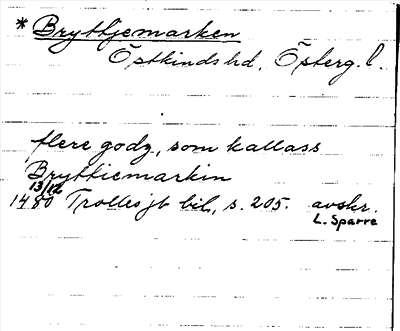 * Bryttjemarken
Östkinds hd, Österg.l.
flere godz, som kallass
Bryttiemarkin
13/12
1480 Trolles jb bil, s. 205. avskr.
L. Sparre